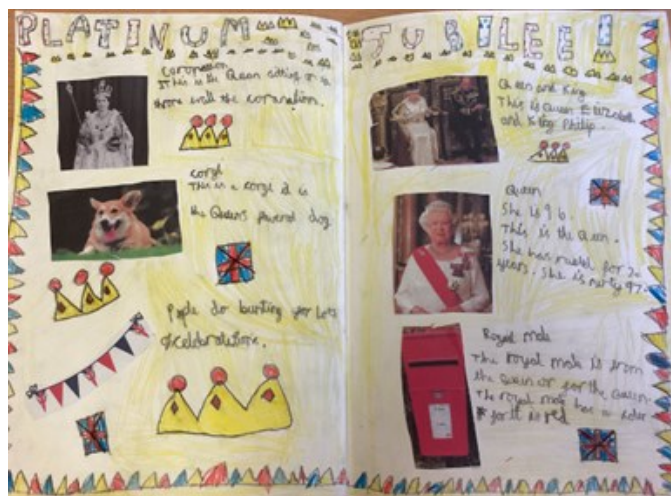 PLATINUM
coronation
This is the Queen sitting on a
throne the coronation.
corgi
This is a corgi it is
the Queen's dog
People do bunting for lots
of celebrations.
JUBILEE!
Queen and King
This is Queen Elizabeth
and King Philip.
Queen
She is 96.
This is the Queen.
She has ruled for 70
years. She is nerly 97.
Royal male
The royal male is from
the Queen or for the Queen.
The royal male has a
for it is red